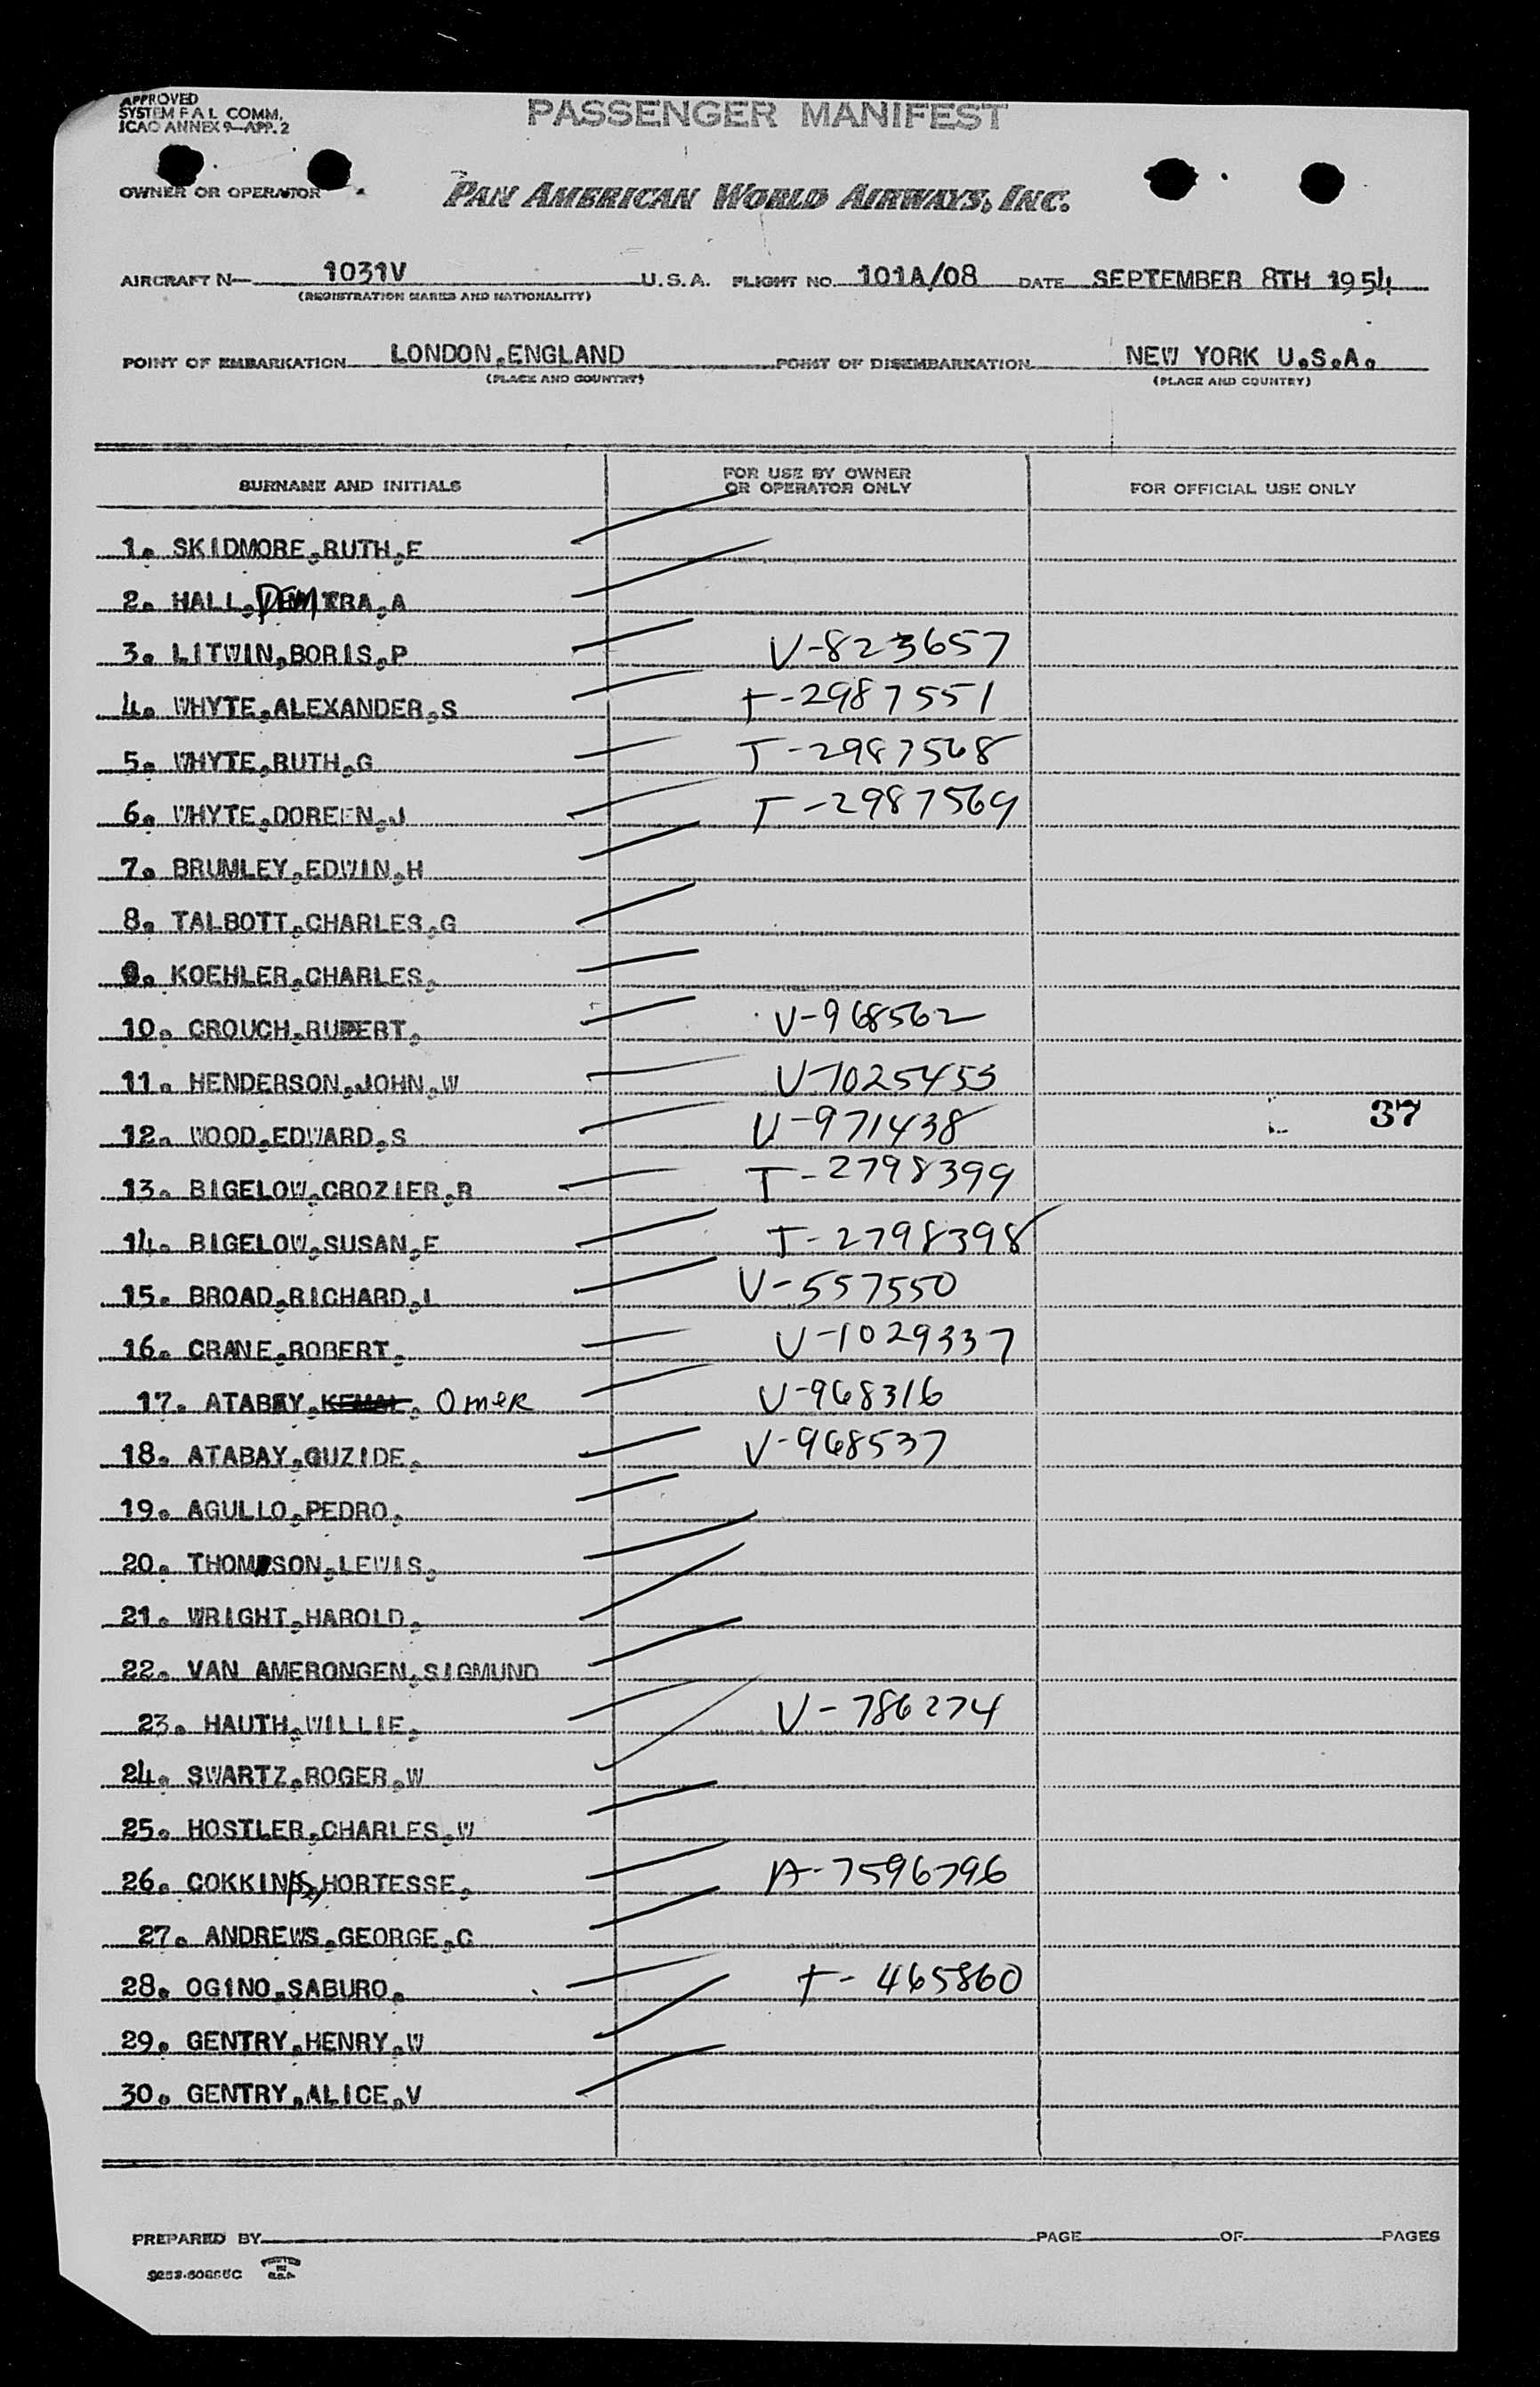 APPROVED
SYSTEM F A L COMM.
ICAO ANNEX 9—APP. 2
PASSENGER MANIFEST
OWNER OR OPERATOR
PAN AMERICAN WORLD AIRWAYS, INC.
AIRCRAFT N— 1031V U.S.A. FLIGHT NO. 101A/08 DATE SEPTEMBER 8TH 1954
(REGISTRATION MARKS AND NATIONALITY)
POINT OF EMBARKATION LONDON,ENGLAND POINT OF DISEMBARKATION NEW YORK U.S.A.
(PLACE AND COUNTRY) (PLACE AND COUNTRY)
SURNAME AND INITIALS FOR USE BY OWNER OR OPERATOR ONLY FOR OFFICIAL USE ONLY
1. SKIDMORE,RUTH,E
2. HALL, A
3. LITWIN,BORIS,P V-823657
4. WHYTE,ALEXANDER,S T-2987551
5. WHYTE,RUTH,G T-2987568
6. WHYTE,DOREEN,J T-2987569
7. BRUMLEY,EDWIN,H
8. TALBOTT,CHARLES,G
9. KOEHLER,CHARLES,
10. CROUCH,RUPERT, V-968562
11. HENDERSON,JOHN,W V-1025453
12. WOOD,EDWARD,S V-971438 37
13. BIGELOW,CROZIER,R T-2798399
14. BIGELOW,SUSAN,E T-2798398
15. BROAD,RICHARD,L V-557550
16. CRANE,ROBERT, V-1029337
17. ATABAY,KEMAL, Omer V-968316
18. ATABAY,GUZIDE, V-968537
19. AGULLO,PEDRO,
20. THOMPSON,LEWIS,
21. WRIGHT,HAROLD,
22. VAN AMERONGEN,SIGMUND
23. HAUTH,WILLIE, V-786274
24. SWARTZ,ROGER,W
25. HOSTLER,CHARLES,W
26. HORTESSE, A-7596796
27. ANDREWS,GEORGE,C
28. OGINO,SABURO, T-465860
29. GENTRY,HENRY,W
30. GENTRY,ALICE,V
PREPARED BY PAGE OF PAGES
PRINTED IN U.S.A.